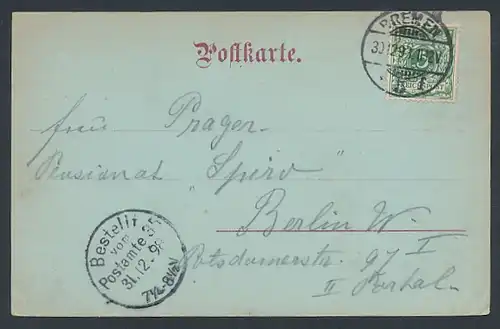 Postkarte.
BREMEN
5
Frau Prager.
Pensionat "Spiro"
Berlin W.
Potsdamerstr. 97 I
II Portal.
Bestellt
vom
Postamte 35
31.12.98
7½-8½V